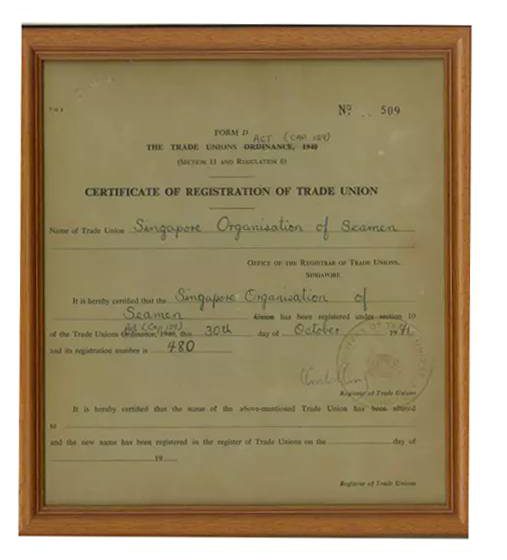 Nº 509
FORM D
ACT (CAP 129)
THE TRADE UNIONS ORDINANCE, 1940
(SECTION 13 AND REGULATION 6)
CERTIFICATE OF REGISTRATION OF TRADE UNION
Name of Trade Union Singapore Organisation of Seamen
OFFICE OF THE REGISTRAR OF TRADE UNIONS,
SINGAPORE
It is hereby certified that the Singapore Organisation of
Seamen Union has been registered under section 10
Act (Cap 129)
of the Trade Unions Ordinance, 1940, this 30th day of October 19
and its registration number is 480
Registrar of Trade Unions
It is hereby certified that the name of the above-mentioned Trade Union has been altered
to
and the new name has been registered in the register of Trade Unions on the day of
19
Registrar of Trade Unions